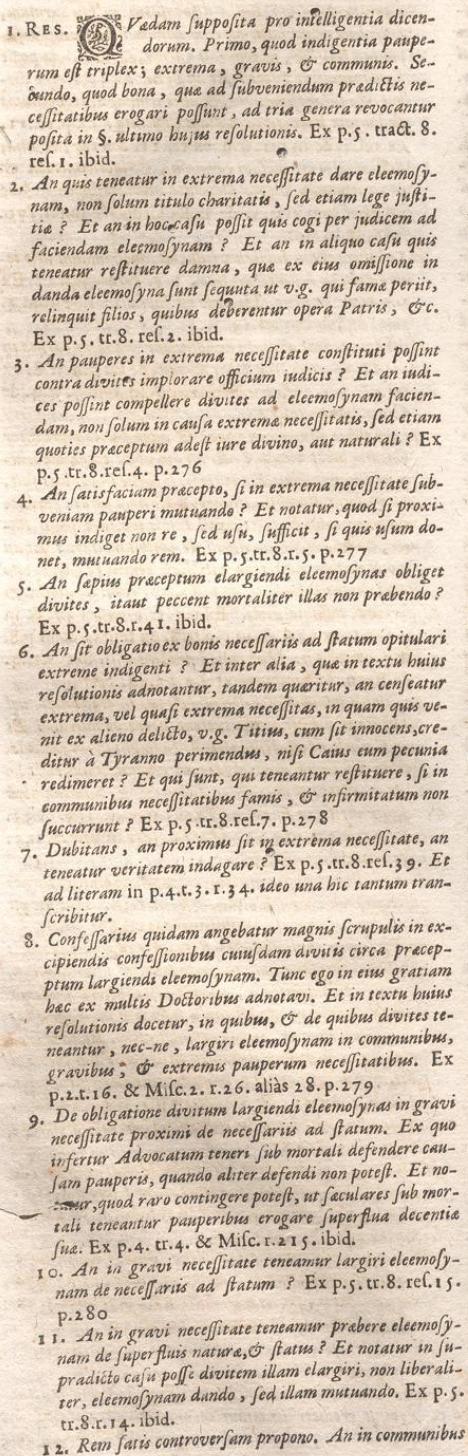 1. RES. QVædam ſuppoſita pro intelligentia dicen-
dorum. Primo, quod indigentia paupe-
rum eſt triplex; extrema, gravis, & communis. Se-
cundo, quod bona, quæ ad ſubveniendum prædictis ne-
ceſſitatibus erogari poſſunt, ad tria genera revocantur
poſita in §. ultimo hujus reſolutionis. Ex p.5. tract. 8.
reſ. 1. ibid.
2. An quis teneatur in extrema neceſſitate dare eleemoſy-
nam, non ſolum titulo charitatis, ſed etiam lege juſti-
tiæ? Et an in hoc caſu poſſit quis cogi per judicem ad
faciendam eleemoſynam? Et an in aliquo caſu quis
teneatur reſtituere damna, quæ ex eius omiſſione in
danda eleemoſyna ſunt ſequuta ut v.g. qui fame periit,
relinquit filios, quibus deberentur opera Patris, &c.
Ex p.5. tr.8. reſ.2. ibid.
3. An pauperes in extrema neceſſitate conſtituti poſſint
contra divites implorare officium iudicis? Et an iudi-
ces poſſint compellere divites ad eleemoſynam facien-
dam, non ſolum in cauſa extremæ neceſſitatis, ſed etiam
quoties præceptum adeſt iure divino, aut naturali? Ex
p.5.tr.8.reſ.4. p.276
4. An ſatisfaciam præcepto, ſi in extrema neceſſitate ſub-
veniam pauperi mutuando? Et notatur, quod ſi proxi-
mus indiget non re, ſed uſu, ſufficit, ſi quis uſum do-
net, mutuando rem. Ex p.5.tr.8.r.5. p.277
5. An ſæpius præceptum elargiendi eleemoſynas obliget
divites, itaut peccent mortaliter illas non præbendo?
Ex p.5.tr.8.r.41. ibid.
6. An ſit obligatio ex bonis neceſſariis ad ſtatum opitulari
extreme indigenti? Et inter alia, quæ in textu huius
reſolutionis adnotantur, tandem quæritur, an cenſeatur
extrema, vel quaſi extrema neceſſitas, in quam quis ve-
nit ex alieno delicto, v.g. Titius, cum ſit innocens, cre-
ditur à Tyranno perimendus, niſi Caius eum pecunia
redimeret? Et qui ſunt, qui teneantur reſtituere, ſi in
communibus neceſſitatibus famis, & infirmitatum non
ſuccurrunt? Ex p.5.tr.8.reſ.7. p.278
7. Dubitans, an proximus ſit in extrema neceſſitate, an
teneatur veritatem indagare? Ex p.5.tr.8.reſ.39. Et
ad literam in p.4.t.3.r.34. ideo una hic tantum tran-
ſcribitur.
8. Confeſſarius quidam angebatur magnis ſcrupulis in ex-
cipiendis confeſſionibus cuiuſdam divitis circa præcep-
ptum largiendi eleemoſynam. Tunc ego in eius gratiam
hæc ex multis Doctoribus adnotavi. Et in textu huius
reſolutionis docetur, in quibus, & de quibus divites te-
neantur, nec-ne, largiri eleemoſynam in communibus,
gravibus, & extremis pauperum neceſſitatibus. Ex
p.2.t.16. & Miſc.2. r.26. aliàs 28. p.279
9. De obligatione divitum largiendi eleemoſynas in gravi
neceſſitate proximi de neceſſariis ad ſtatum. Ex quo
infertur Advocatum teneri ſub mortali defendere cau-
ſam pauperis, quando aliter defendi non poteſt. Et no-
tatur, quod raro contingere poteſt, ut ſæculares ſub mor-
tali teneantur pauperibus erogare ſuperflua decentiæ
ſuæ. Ex p.4. tr.4. & Miſc. r.215. ibid.
10. An in gravi neceſſitate teneamur largiri eleemoſy-
nam de neceſſariis ad ſtatum? Ex p.5.tr.8. reſ.15.
p.280
11. An in gravi neceſſitate teneamur præbere eleemoſy-
nam de ſuperfluis naturæ, & ſtatus? Et notatur in ſu-
pradicto caſu poſſe divitem illam elargiri, non liberali-
ter, eleemoſynam dando, ſed illam mutuando. Ex p.5.
tr.8.r.14. ibid.
12. Rem ſatis controverſam propono. An in communibus